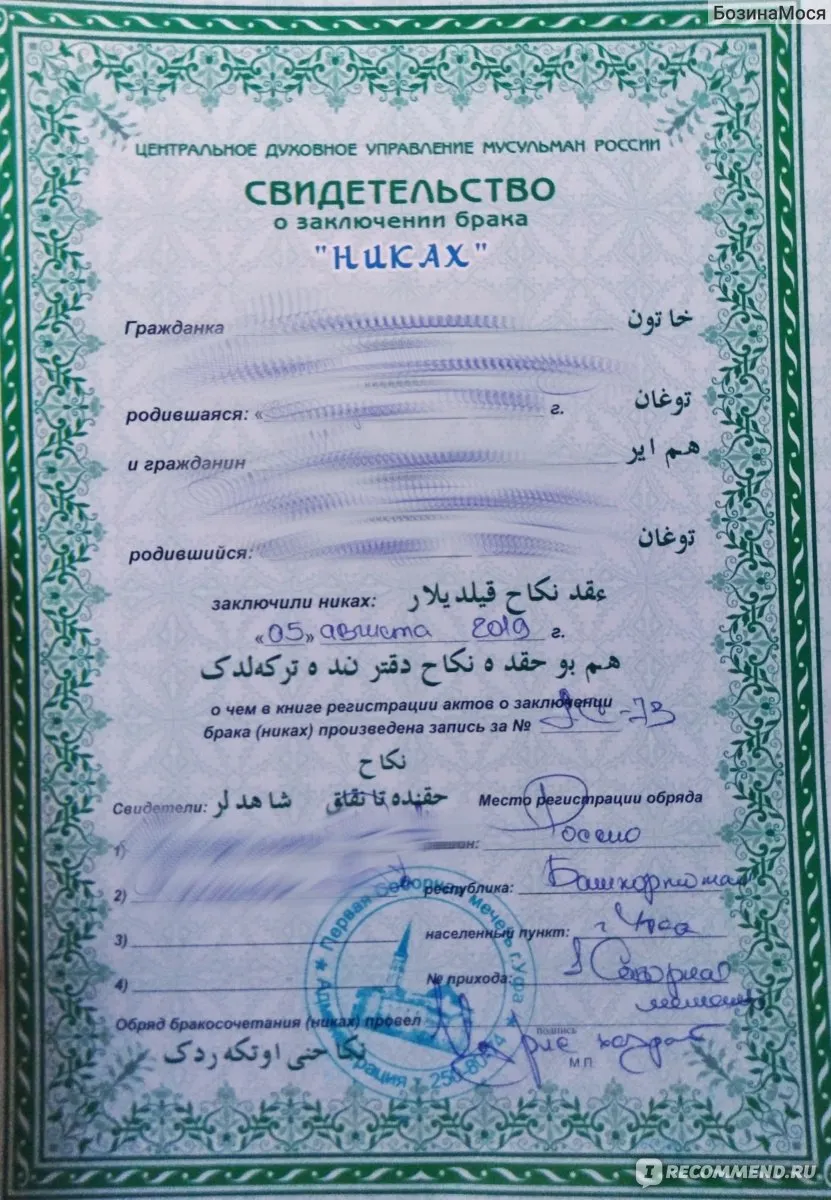 БозинаМося
ЦЕНТРАЛЬНОЕ ДУХОВНОЕ УПРАВЛЕНИЕ МУСУЛЬМАН РОССИИ
СВИДЕТЕЛЬСТВО
о заключении брака
"НИКАХ"
Гражданка خاتون
родившаяся: « г. توغان
и гражданин هم اير
родившийся: توغان
заключили никах: عقد نكاح قيلديلار
«05» августа 2019 г.
هم بو حقده نكاح دفترنده تركەلدك
о чем в книге регистрации актов о заключении
брака (никах) произведена запись за № -73
نكاح
Свидетели: حقنده تانقلق شاهدلر Место регистрации обряда
1) Россию
2) республика: Башкортостан
3) населенный пункт: г Уфа
4) № прихода: 1 Соборная
мечеть
Обряд бракосочетания (никах) провел
подпись
نكاحنى اوتكەردك
М П
Первая Соборная мечеть г.Уфа
250-80-
IRECOMMEND.RU